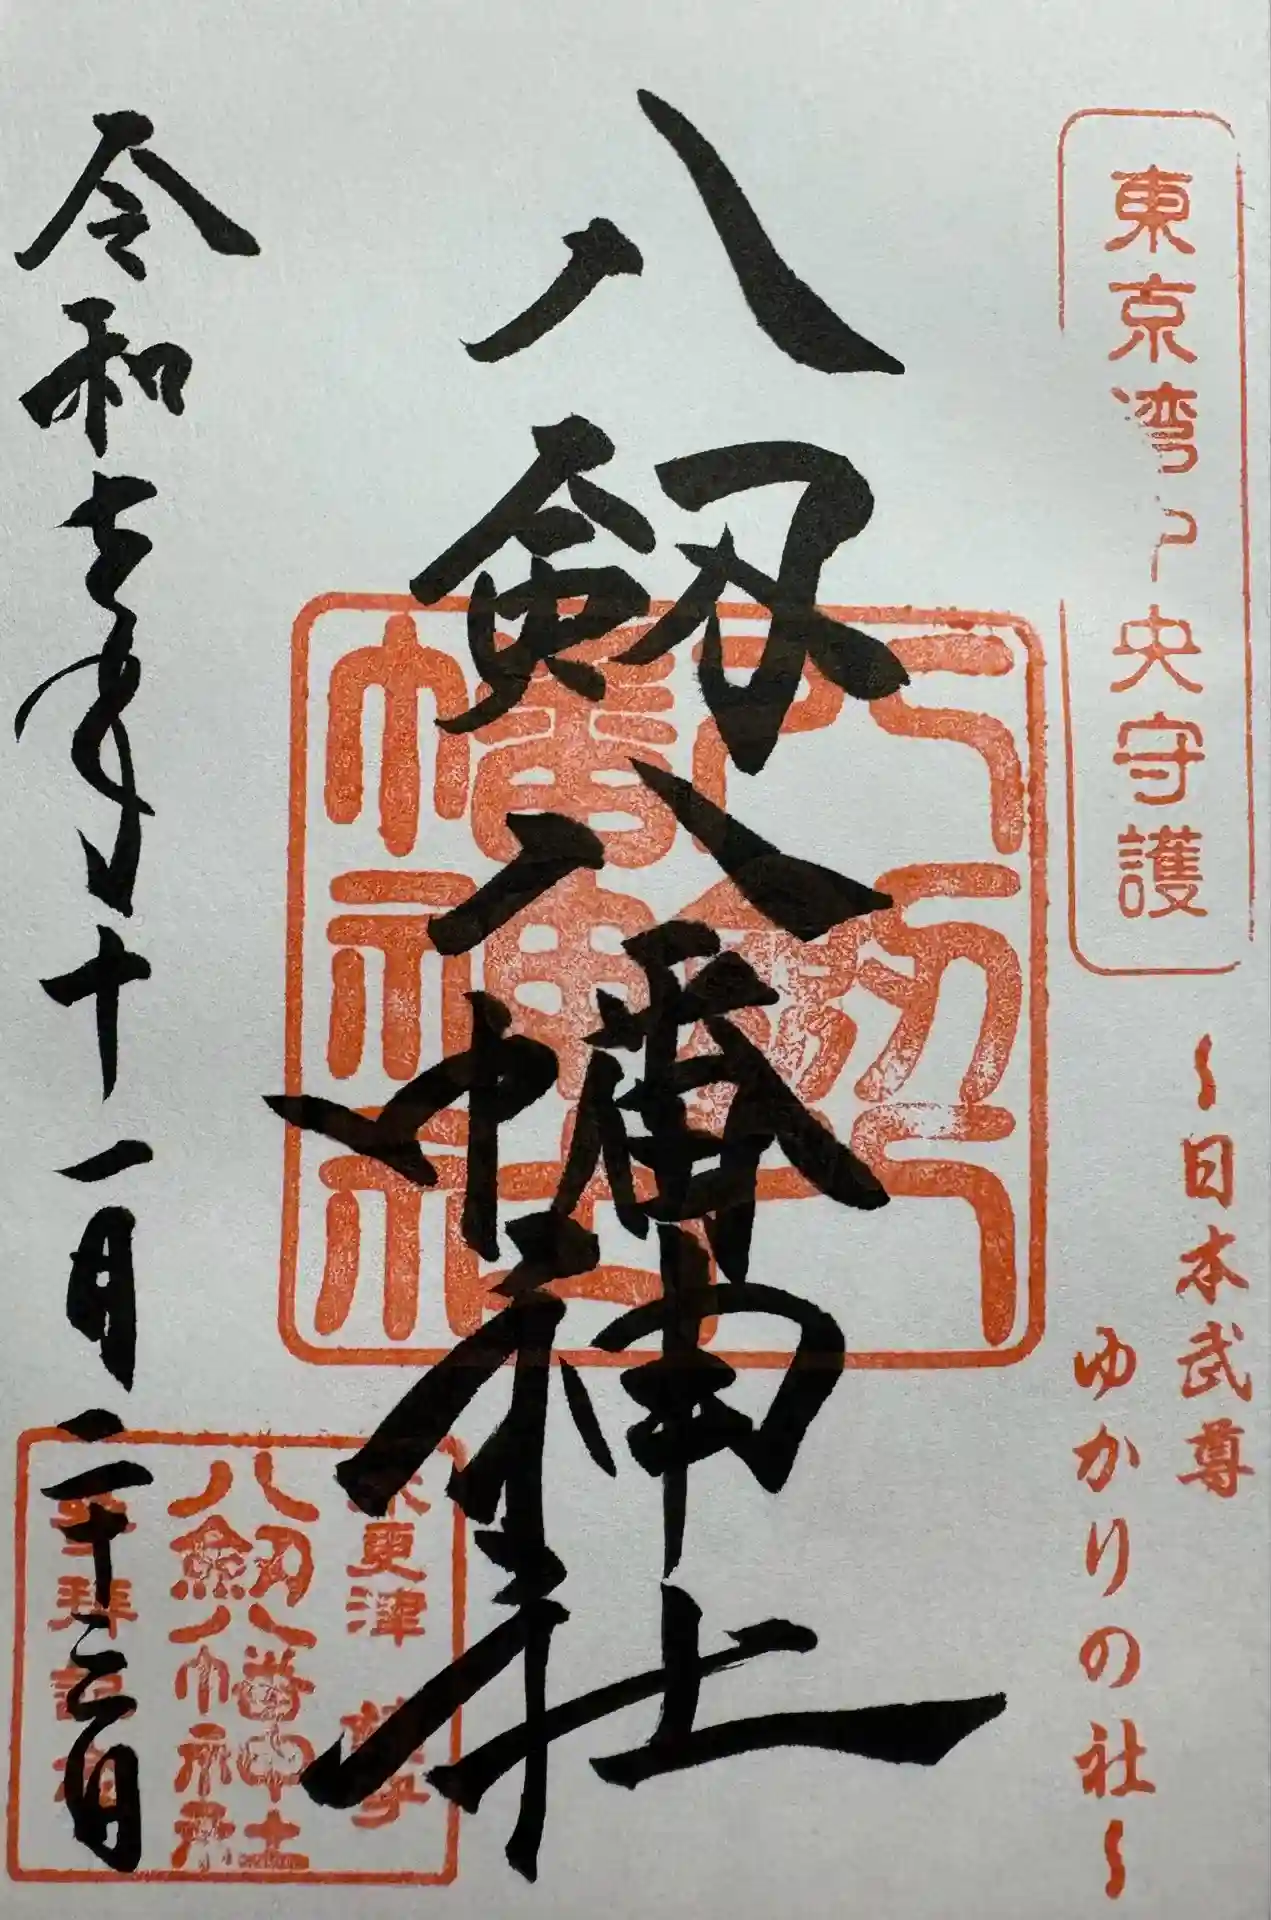 東京湾中央守護
〜日本武尊
ゆかりの社〜
八剱八幡神社
八剱八幡神社
木更津
八剱八幡神社
参拝記念
令和七年十一月二十三日